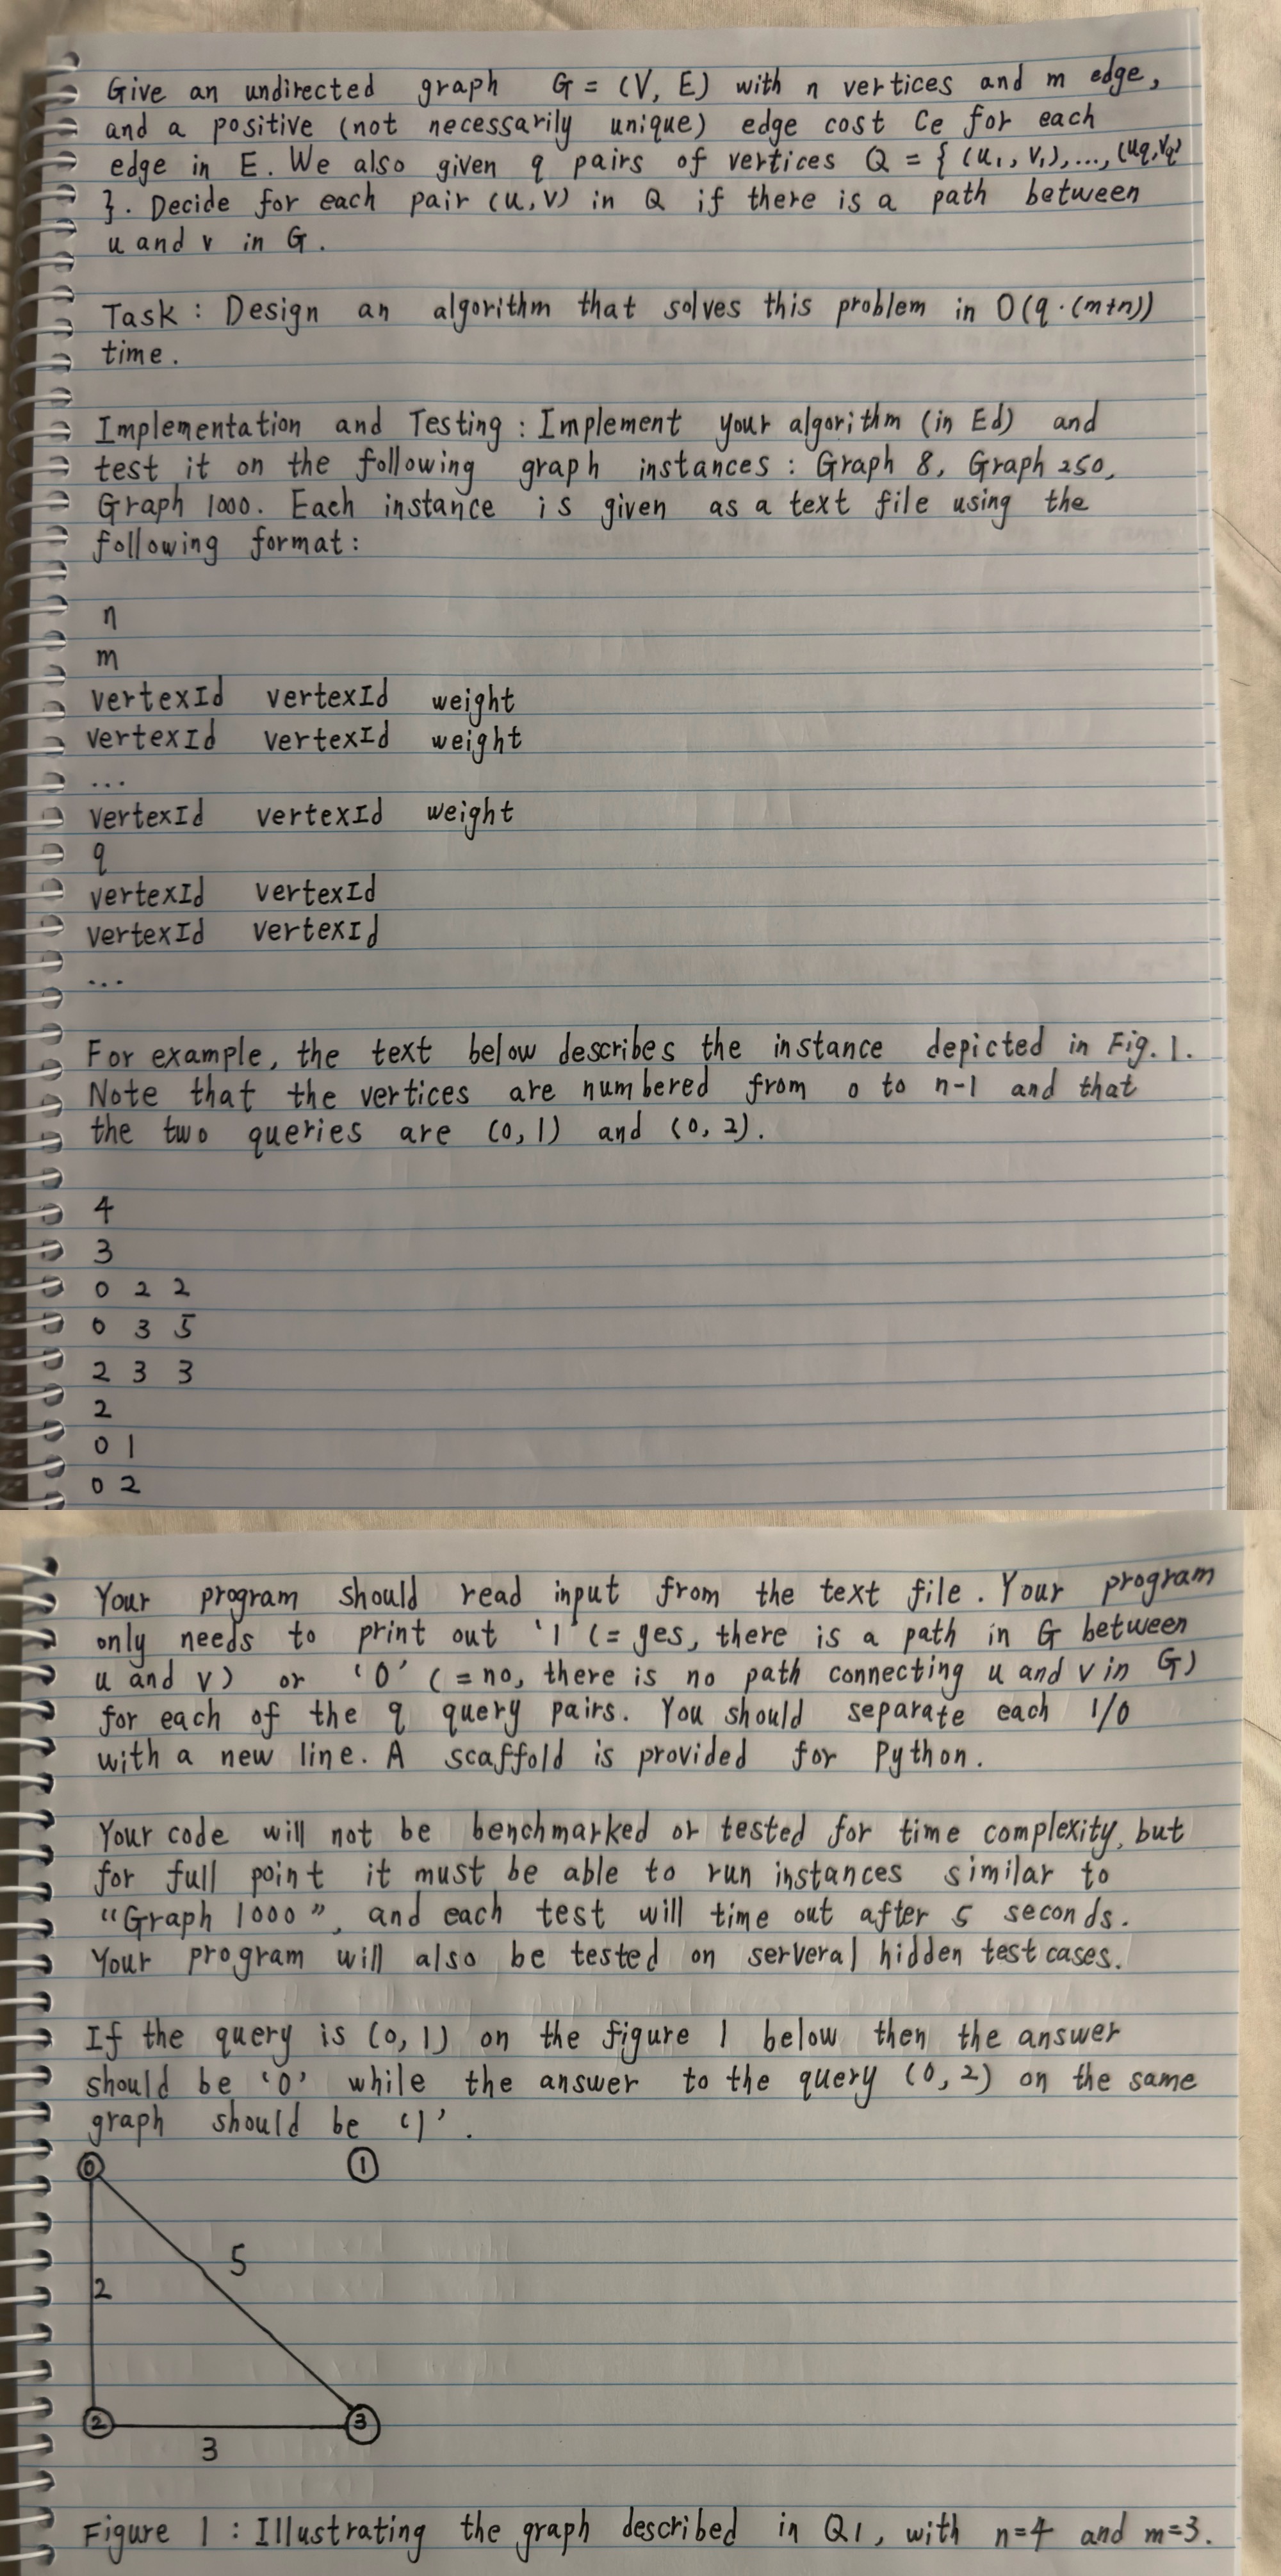 Give an undirected graph G = (V, E) with n vertices and m edge,
and a positive (not necessarily unique) edge cost Ce for each
edge in E. We also given q pairs of vertices Q = { (u₁, v₁), ..., (uq, vq)
}. Decide for each pair (u, v) in Q if there is a path between
u and v in G.
Task : Design an algorithm that solves this problem in O(q·(m+n))
time.
Implementation and Testing : Implement your algorithm (in Ed) and
test it on the following graph instances : Graph 8, Graph 250,
Graph 1000. Each instance is given as a text file using the
following format :
n
m
vertexId vertexId weight
vertexId vertexId weight
...
vertexId vertexId weight
q
vertexId vertexId
vertexId vertexId
...
For example, the text below describes the instance depicted in Fig. 1.
Note that the vertices are numbered from 0 to n-1 and that
the two queries are (0, 1) and (0, 2).
4
3
0 2 2
0 3 5
2 3 3
2
0 1
0 2
Your program should read input from the text file. Your program
only needs to print out '1' (= yes, there is a path in G between
u and v) or '0' (= no, there is no path connecting u and v in G)
for each of the q query pairs. You should separate each 1/0
with a new line. A scaffold is provided for Python.
Your code will not be benchmarked or tested for time complexity, but
for full point it must be able to run instances similar to
"Graph 1000", and each test will time out after 5 seconds.
Your program will also be tested on serveral hidden test cases.
If the query is (0, 1) on the figure 1 below then the answer
should be '0' while the answer to the query (0, 2) on the same
graph should be '1'.
0 1
5
2
2 3
3
Figure 1 : Illustrating the graph described in Q1, with n=4 and m=3.